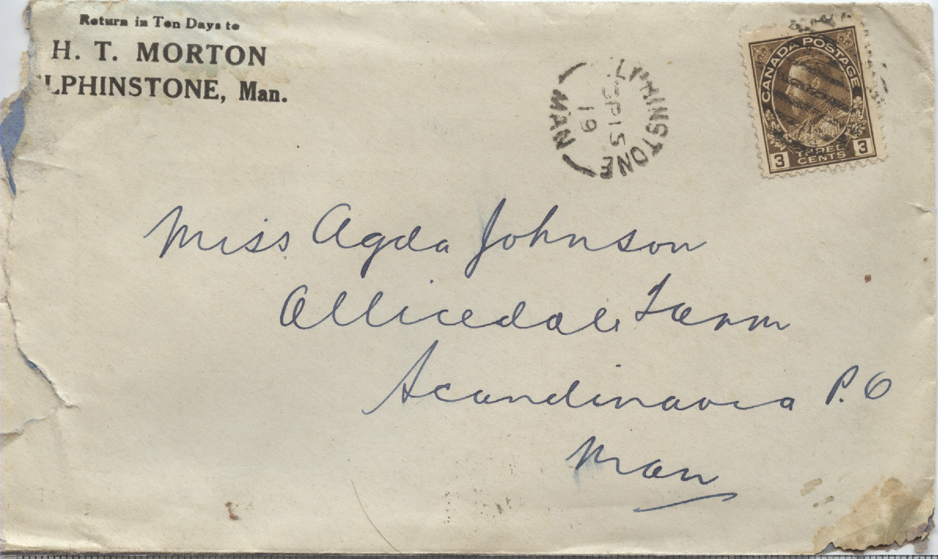 Return in Ten Days to
H. T. MORTON
ELPHINSTONE, Man.
ELPHINSTONE
SP 15
19
MAN
CANADA POSTAGE
3 THREE CENTS 3
Miss Agda Johnson
Allicedale Farm
Scandinavia P.O
Man